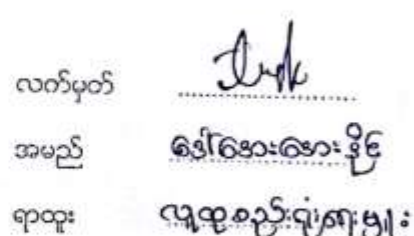 လက်မှတ်
အမည် ဒေါ်အေးအေးခိုင်
ရာထူး လူထုစည်းရုံးရေးမှူး